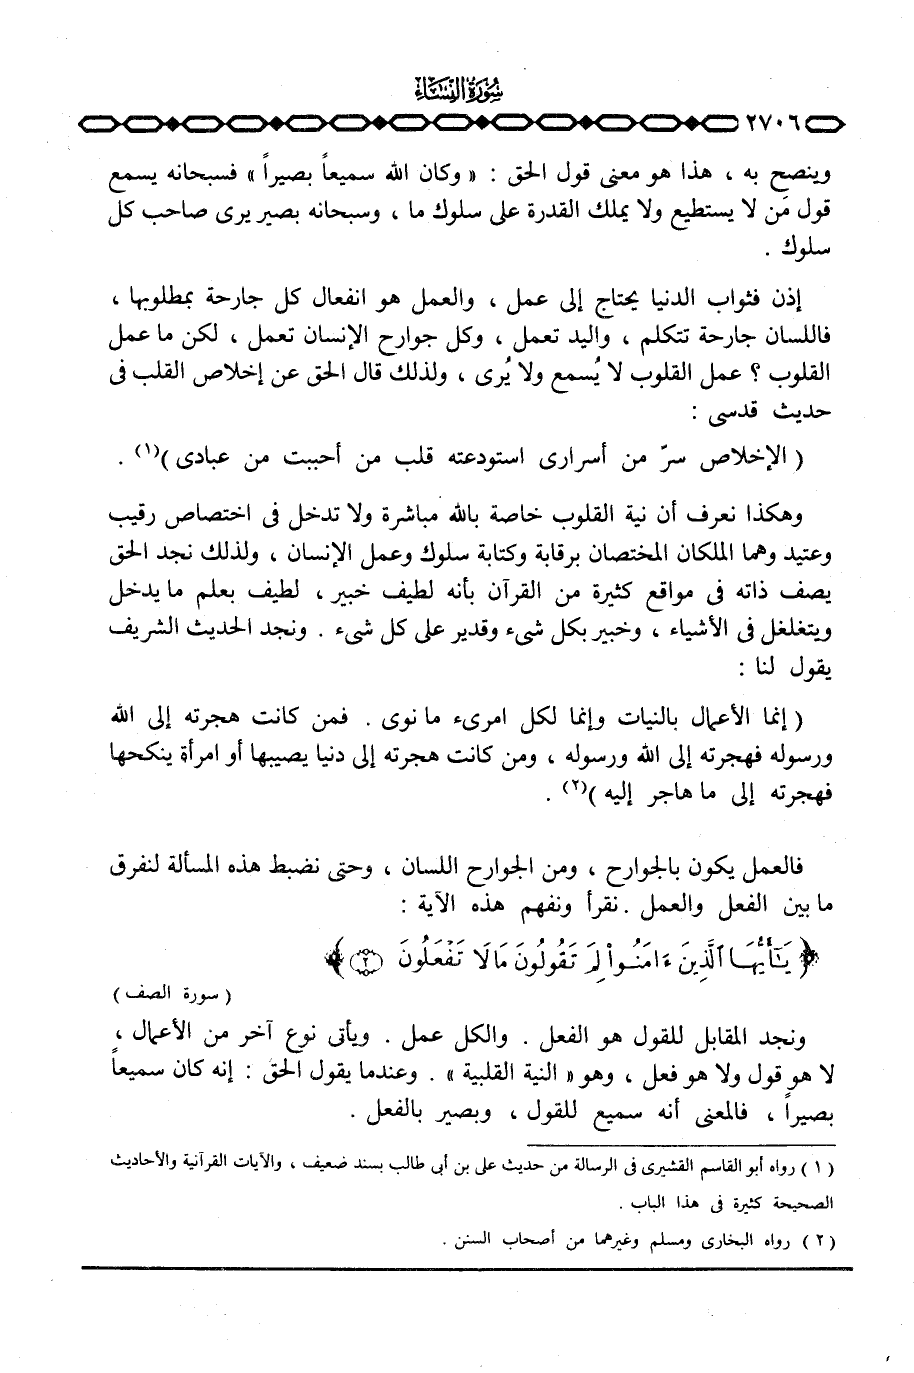 سُورَةُ النِّسَاءِ
٢٧٠٦
وينصح به ، هذا هو معنى قول الحق : « وكان الله سميعاً بصيراً » فسبحانه يسمع
قول مَن لا يستطيع ولا يملك القدرة على سلوك ما ، وسبحانه بصير يرى صاحب كل
سلوك .
إذن فثواب الدنيا يحتاج إلى عمل ، والعمل هو انفعال كل جارحة بمطلوبها ،
فاللسان جارحة تتكلم ، واليد تعمل ، وكل جوارح الإنسان تعمل ، لكن ما عمل
القلوب ؟ عمل القلوب لا يُسمع ولا يُرى ، ولذلك قال الحق عن إخلاص القلب فى
حديث قدسى :
( الإخلاص سرّ من أسرارى استودعته قلب من أحببت من عبادى )(١) .
وهكذا نعرف أن نية القلوب خاصة بالله مباشرة ولا تدخل فى اختصاص رقيب
وعتيد وهما الملكان المختصان برقابة وكتابة سلوك وعمل الإنسان ، ولذلك نجد الحق
يصف ذاته فى مواقع كثيرة من القرآن بأنه لطيف خبير ، لطيف بعلم ما يدخل
ويتغلغل فى الأشياء ، وخبير بكل شىء وقدير على كل شىء . ونجد الحديث الشريف
يقول لنا :
( إنما الأعمال بالنيات وإنما لكل امرىء ما نوى . فمن كانت هجرته إلى الله
ورسوله فهجرته إلى الله ورسوله ، ومن كانت هجرته إلى دنيا يصيبها أو امرأة ينكحها
فهجرته إلى ما هاجر إليه )(٢) .
فالعمل يكون بالجوارح ، ومن الجوارح اللسان ، وحتى نضبط هذه المسألة لنفرق
ما بين الفعل والعمل . نقرأ ونفهم هذه الآية :
﴿ يَـٰٓأَيُّهَا ٱلَّذِينَ ءَامَنُوا۟ لِمَ تَقُولُونَ مَا لَا تَفْعَلُونَ ٢ ﴾
( سورة الصف )
ونجد المقابل للقول هو الفعل . والكل عمل . ويأتى نوع آخر من الأعمال ،
لا هو قول ولا هو فعل ، وهو « النية القلبية » . وعندما يقول الحق : إنه كان سميعاً
بصيراً ، فالمعنى أنه سميع للقول ، وبصير بالفعل .
( ١ ) رواه أبو القاسم القشيرى فى الرسالة من حديث على بن أبى طالب بسند ضعيف ، والآيات القرآنية والأحاديث
الصحيحة كثيرة فى هذا الباب .
( ٢ ) رواه البخارى ومسلم وغيرهما من أصحاب السنن .